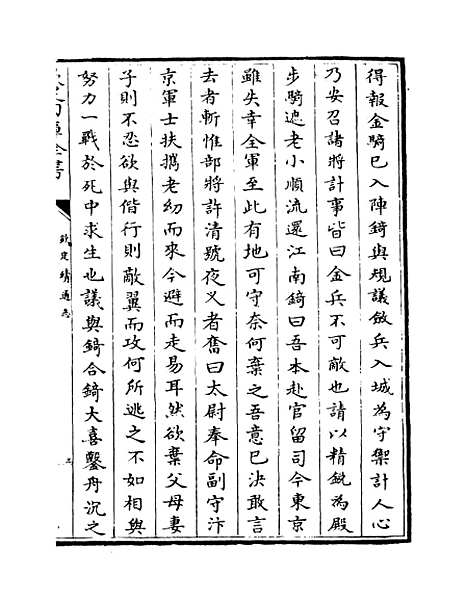 得報金騎已入陣錡與規議斂兵入城為守禦計人心
乃安召諸將計事皆曰金兵不可敵也請以精銳為殿
步騎遮老小順流還江南錡曰吾本赴官留司今東京
雖失幸全軍至此有地可守奈何棄之吾意已決敢言
去者斬惟部將許清號夜叉者奮曰太尉奉命副守汴
京軍士扶攜老幼而來今避而走易耳然欲棄父母妻
子則不忍欲與偕行則敵翼而攻何所逃之不如相與
努力一戰於死中求生也議與錡合錡大喜鑿舟沉之
欽定續通志